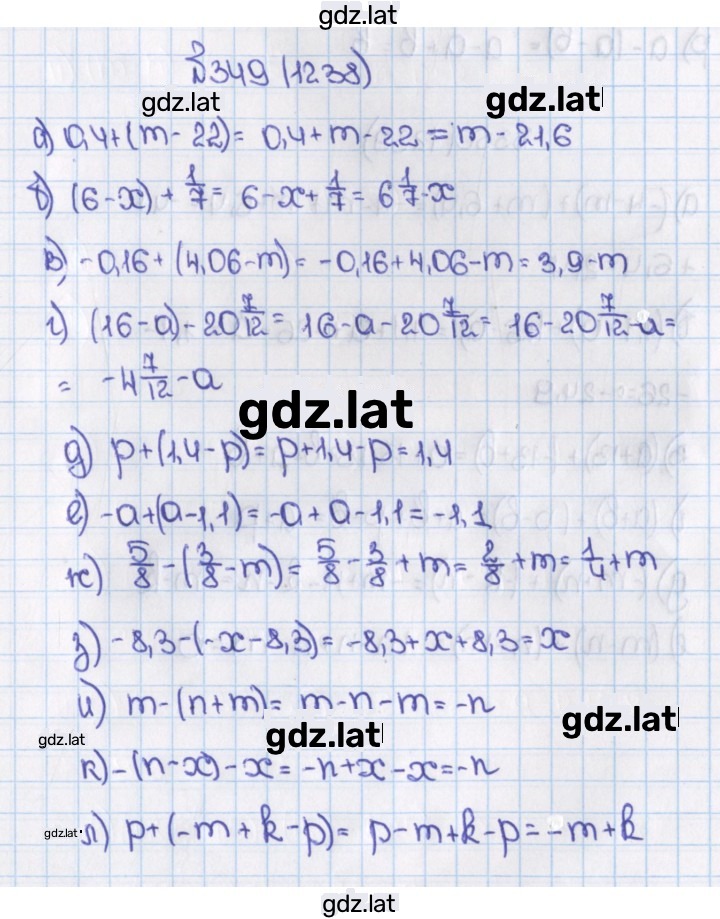 gdz.lat
№349 (1238)
gdz.lat gdz.lat
а) 0,4+(m-22)= 0,4+m-22=m-21,6
б) (6-x)+1/7= 6-x+1/7=6 1/7-x
в) -0,16+(4,06-m)=-0,16+4,06-m=3,9-m
г) (16-a)-20 7/12= 16-a-20 7/12= 16-20 7/12-a=
= -4 7/12-a
gdz.lat
д) p+(1,4-p)=p+1,4-p=1,4
е) -a+(a-1,1)=-a+a-1,1=-1,1
ж) 5/8-(3/8-m)= 5/8-3/8+m=2/8+m=1/4+m
з) -8,3-(-x-8,3)=-8,3+x+8,3=x
и) m-(n+m)= m-n-m=-n
gdz.lat
gdz.lat gdz.lat
к) -(n-x)-x=-n+x-x=-n
gdz.lat л) p+(-m+k-p)= p-m+k-p=-m+k
gdz.lat